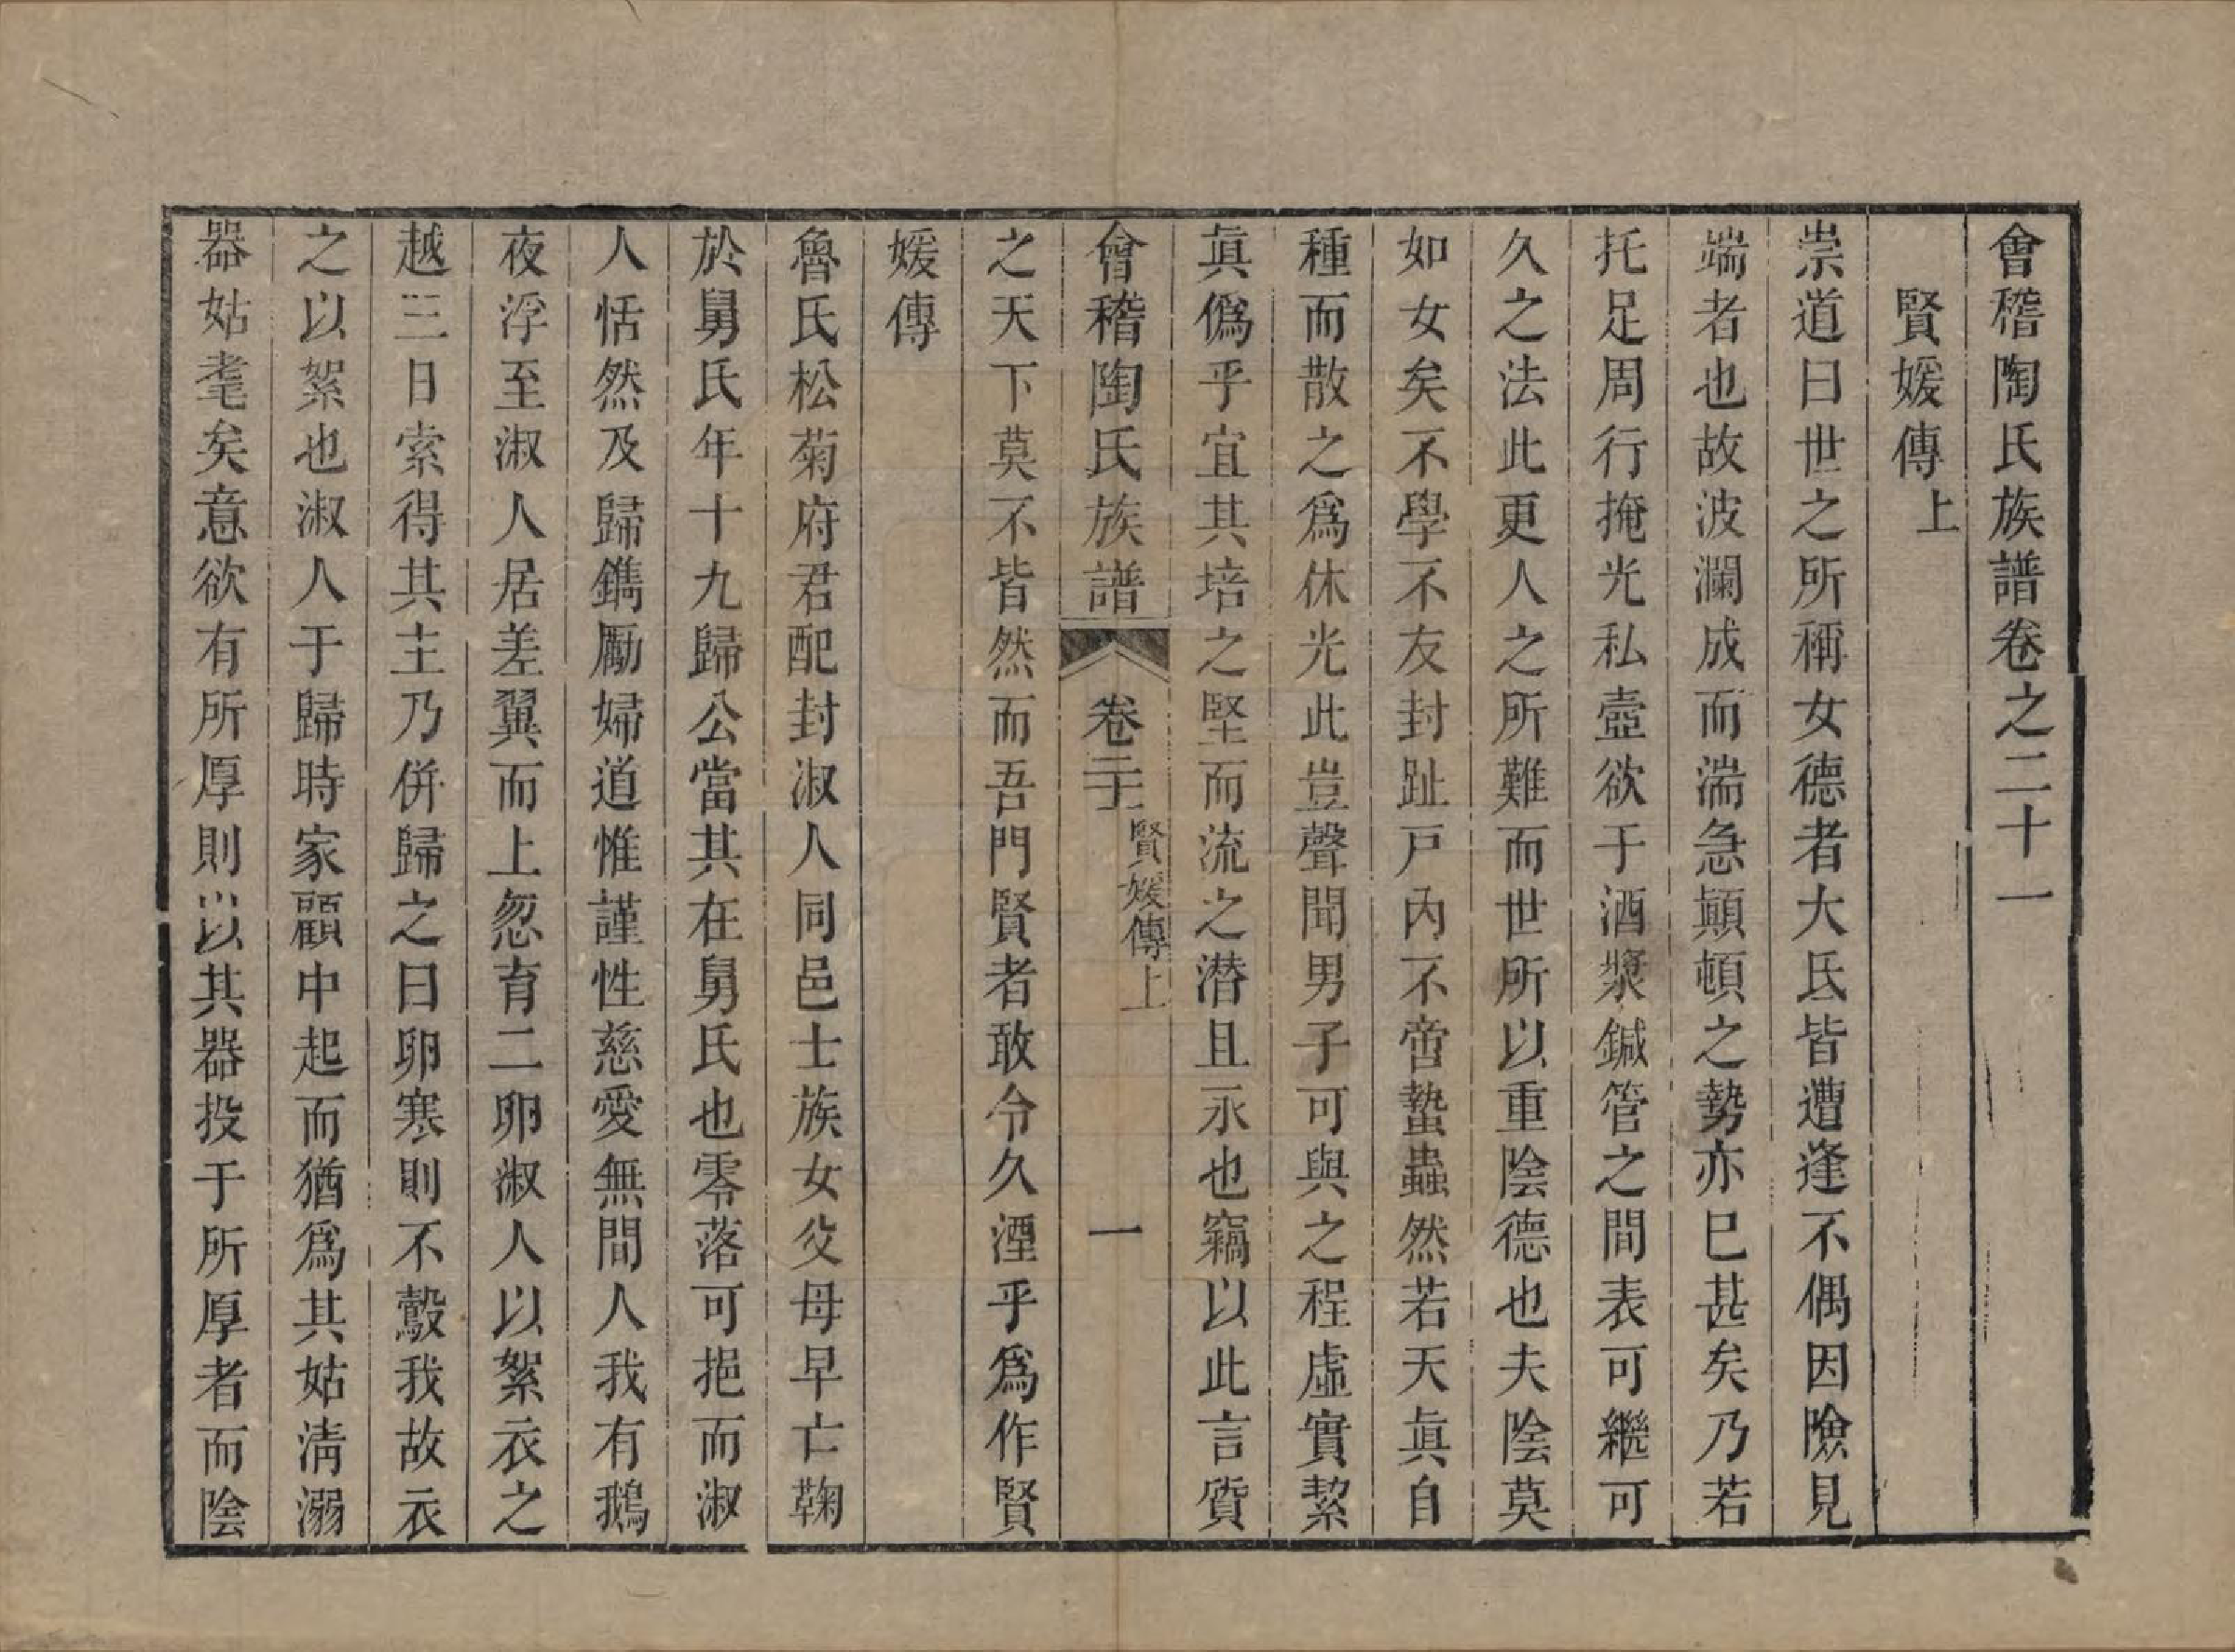 會稽陶氏族譜卷之二十一
賢媛傳上
崇道曰世之所稱女德者大氐皆遭逢不偶因險見
端者也故波瀾成而湍急顛頓之勢亦巳甚矣乃若
托足周行掩光私壼欲于酒漿鍼管之間表可繼可
久之法此更人之所難而世所以重陰德也夫陰莫
如女矣不學不友封趾戸內不啻蟄蟲然若天眞自
種而散之爲休光此豈聲聞男子可與之程虛實絜
眞僞乎宜其培之堅而流之潜且永也竊以此言質
會稽陶氏族譜 卷二十一 賢媛傳上 一
之天下莫不皆然而吾門賢者敢令久湮乎爲作賢
媛傳
魯氏松菊府君配封淑人同邑士族女父母早亡鞠
於舅氏年十九歸公當其在舅氏也零落可挹而淑
人恬然及歸鐫勵婦道惟謹性慈愛無間人我有鵝
夜浮至淑人居差翼而上忽育二卵淑人以絮衣之
越三日索得其主乃併歸之曰卵寒則不鷇我故衣
之以絮也淑人于歸時家顧中起而猶爲其姑淸溺
器姑耄矣意欲有所厚則以其器投于所厚者而陰